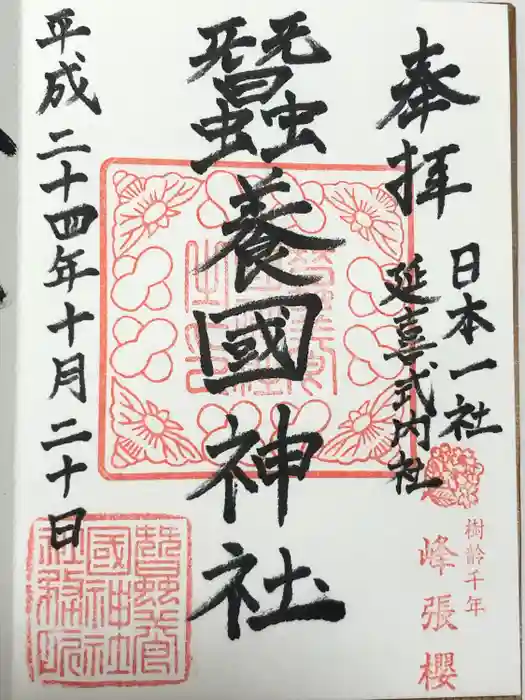 奉拝
日本一社
延喜式内社
樹齢千年
峰張櫻
蠶養國神社
平成二十四年十月二十日
蠶養國神社務所